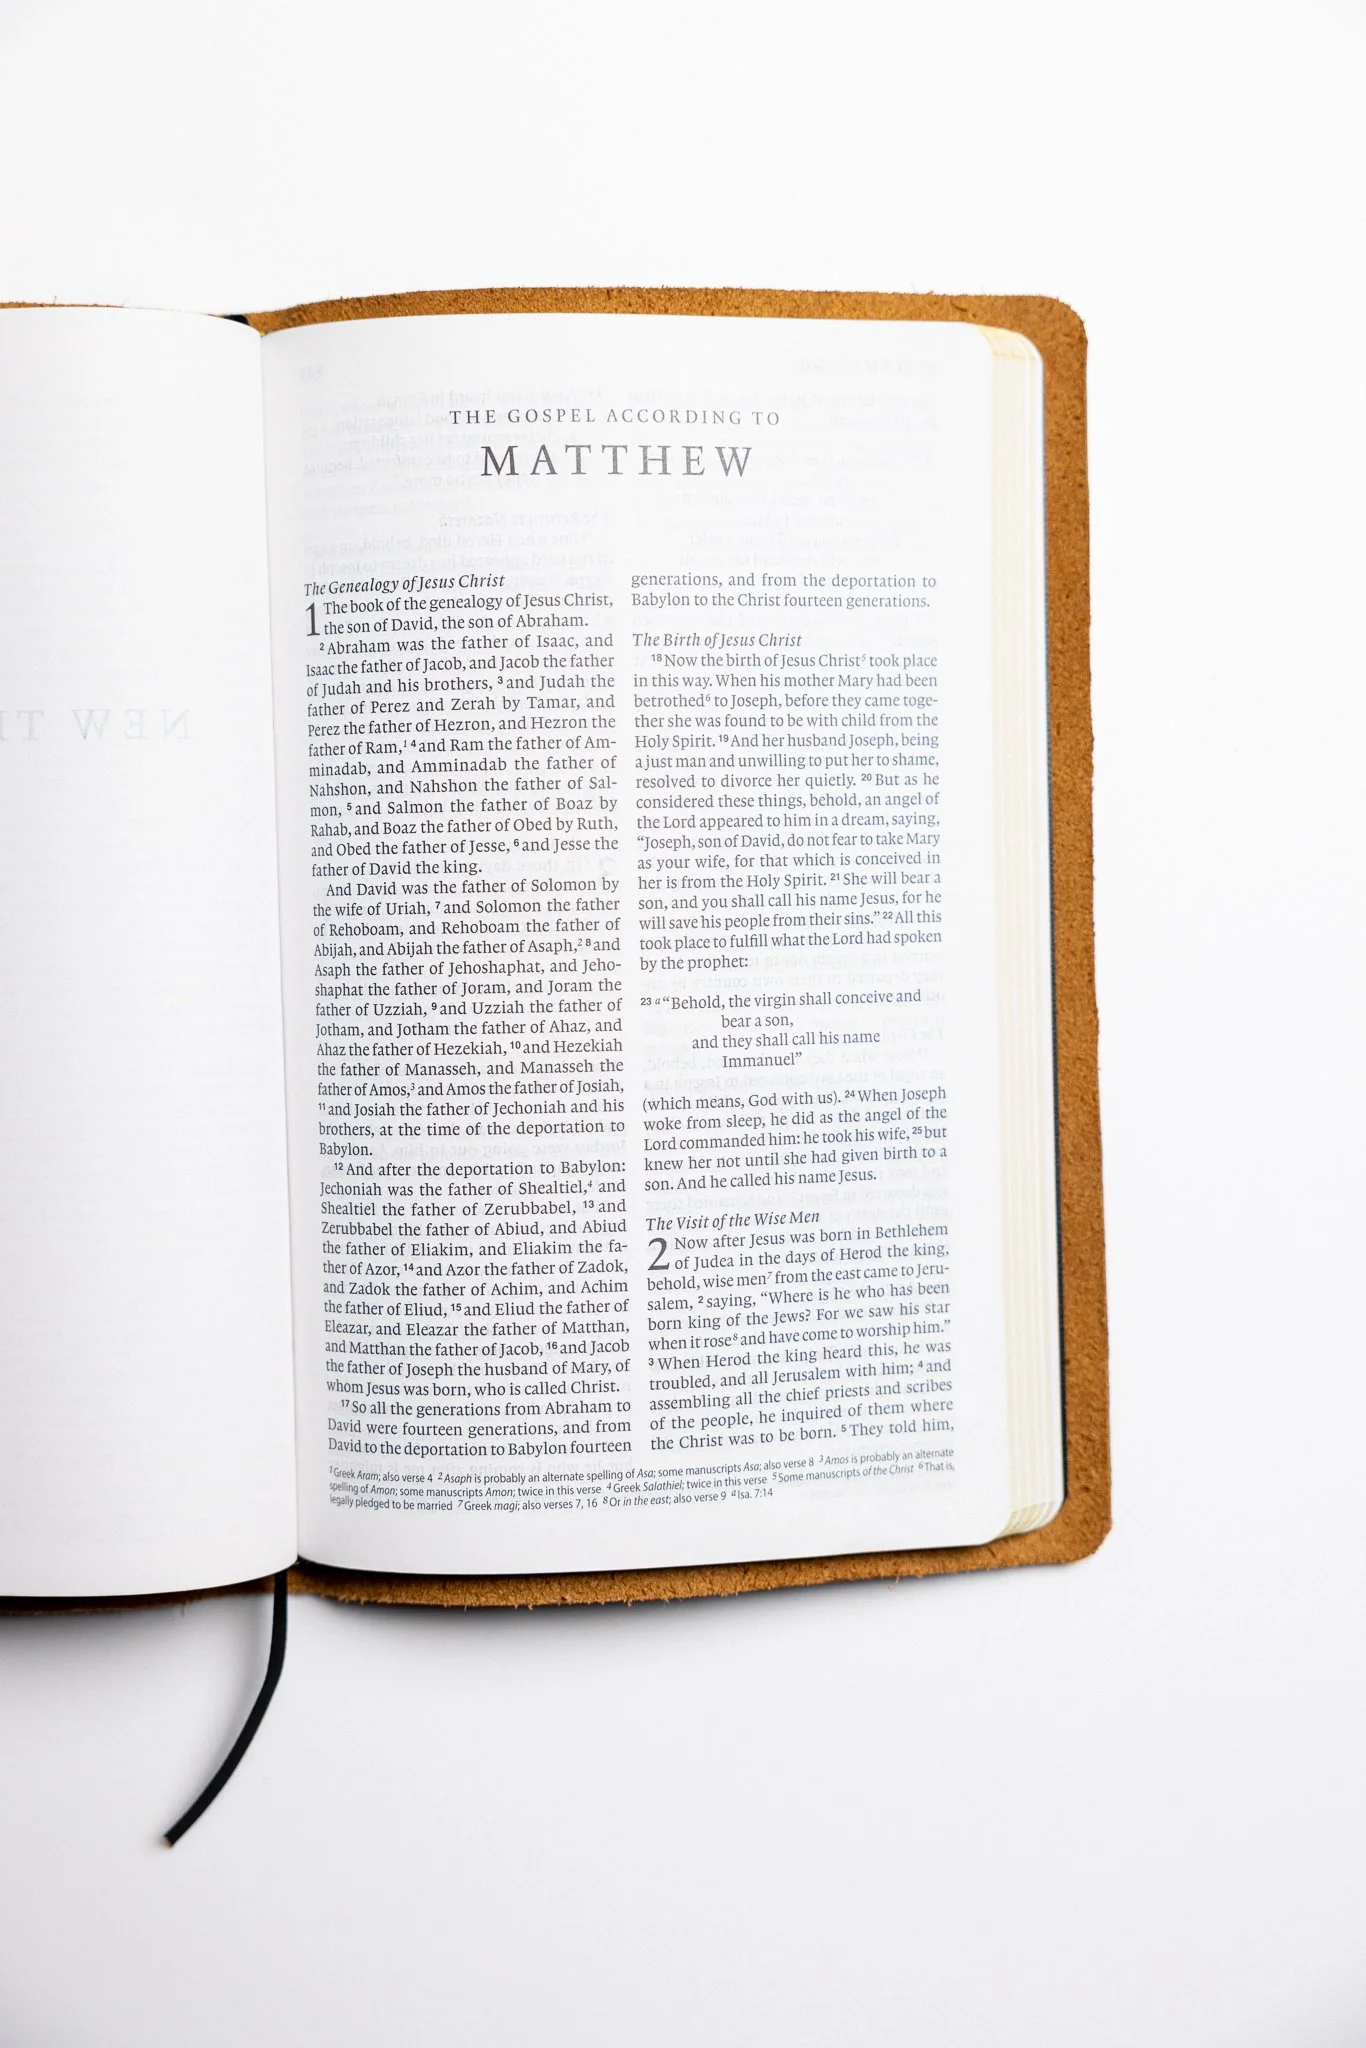 THE GOSPEL ACCORDING TO
MATTHEW
The Genealogy of Jesus Christ
1 The book of the genealogy of Jesus Christ,
the son of David, the son of Abraham.
2 Abraham was the father of Isaac, and
Isaac the father of Jacob, and Jacob the father
of Judah and his brothers, 3 and Judah the
father of Perez and Zerah by Tamar, and
Perez the father of Hezron, and Hezron the
father of Ram,1 4 and Ram the father of Am-
minadab, and Amminadab the father of
Nahshon, and Nahshon the father of Sal-
mon, 5 and Salmon the father of Boaz by
Rahab, and Boaz the father of Obed by Ruth,
and Obed the father of Jesse, 6 and Jesse the
father of David the king.
And David was the father of Solomon by
the wife of Uriah, 7 and Solomon the father
of Rehoboam, and Rehoboam the father of
Abijah, and Abijah the father of Asaph,2 8 and
Asaph the father of Jehoshaphat, and Jeho-
shaphat the father of Joram, and Joram the
father of Uzziah, 9 and Uzziah the father of
Jotham, and Jotham the father of Ahaz, and
Ahaz the father of Hezekiah, 10 and Hezekiah
the father of Manasseh, and Manasseh the
father of Amos,3 and Amos the father of Josiah,
11 and Josiah the father of Jechoniah and his
brothers, at the time of the deportation to
Babylon.
12 And after the deportation to Babylon:
Jechoniah was the father of Shealtiel,4 and
Shealtiel the father of Zerubbabel, 13 and
Zerubbabel the father of Abiud, and Abiud
the father of Eliakim, and Eliakim the fa-
ther of Azor, 14 and Azor the father of Zadok,
and Zadok the father of Achim, and Achim
the father of Eliud, 15 and Eliud the father of
Eleazar, and Eleazar the father of Matthan,
and Matthan the father of Jacob, 16 and Jacob
the father of Joseph the husband of Mary, of
whom Jesus was born, who is called Christ.
17 So all the generations from Abraham to
David were fourteen generations, and from
David to the deportation to Babylon fourteen
generations, and from the deportation to
Babylon to the Christ fourteen generations.
The Birth of Jesus Christ
18 Now the birth of Jesus Christ5 took place
in this way. When his mother Mary had been
betrothed6 to Joseph, before they came toge-
ther she was found to be with child from the
Holy Spirit. 19 And her husband Joseph, being
a just man and unwilling to put her to shame,
resolved to divorce her quietly. 20 But as he
considered these things, behold, an angel of
the Lord appeared to him in a dream, saying,
“Joseph, son of David, do not fear to take Mary
as your wife, for that which is conceived in
her is from the Holy Spirit. 21 She will bear a
son, and you shall call his name Jesus, for he
will save his people from their sins.” 22 All this
took place to fulfill what the Lord had spoken
by the prophet:
23 a “Behold, the virgin shall conceive and
bear a son,
and they shall call his name
Immanuel”
(which means, God with us). 24 When Joseph
woke from sleep, he did as the angel of the
Lord commanded him: he took his wife, 25 but
knew her not until she had given birth to a
son. And he called his name Jesus.
The Visit of the Wise Men
2 Now after Jesus was born in Bethlehem
of Judea in the days of Herod the king,
behold, wise men7 from the east came to Jeru-
salem, 2 saying, “Where is he who has been
born king of the Jews? For we saw his star
when it rose8 and have come to worship him.”
3 When Herod the king heard this, he was
troubled, and all Jerusalem with him; 4 and
assembling all the chief priests and scribes
of the people, he inquired of them where
the Christ was to be born. 5 They told him,
1 Greek Aram; also verse 4 2 Asaph is probably an alternate spelling of Asa; some manuscripts Asa; also verse 8 3 Amos is probably an alternate
spelling of Amon; some manuscripts Amon; twice in this verse 4 Greek Salathiel; twice in this verse 5 Some manuscripts of the Christ 6 That is,
legally pledged to be married 7 Greek magi; also verses 7, 16 8 Or in the east; also verse 9 a Isa. 7:14